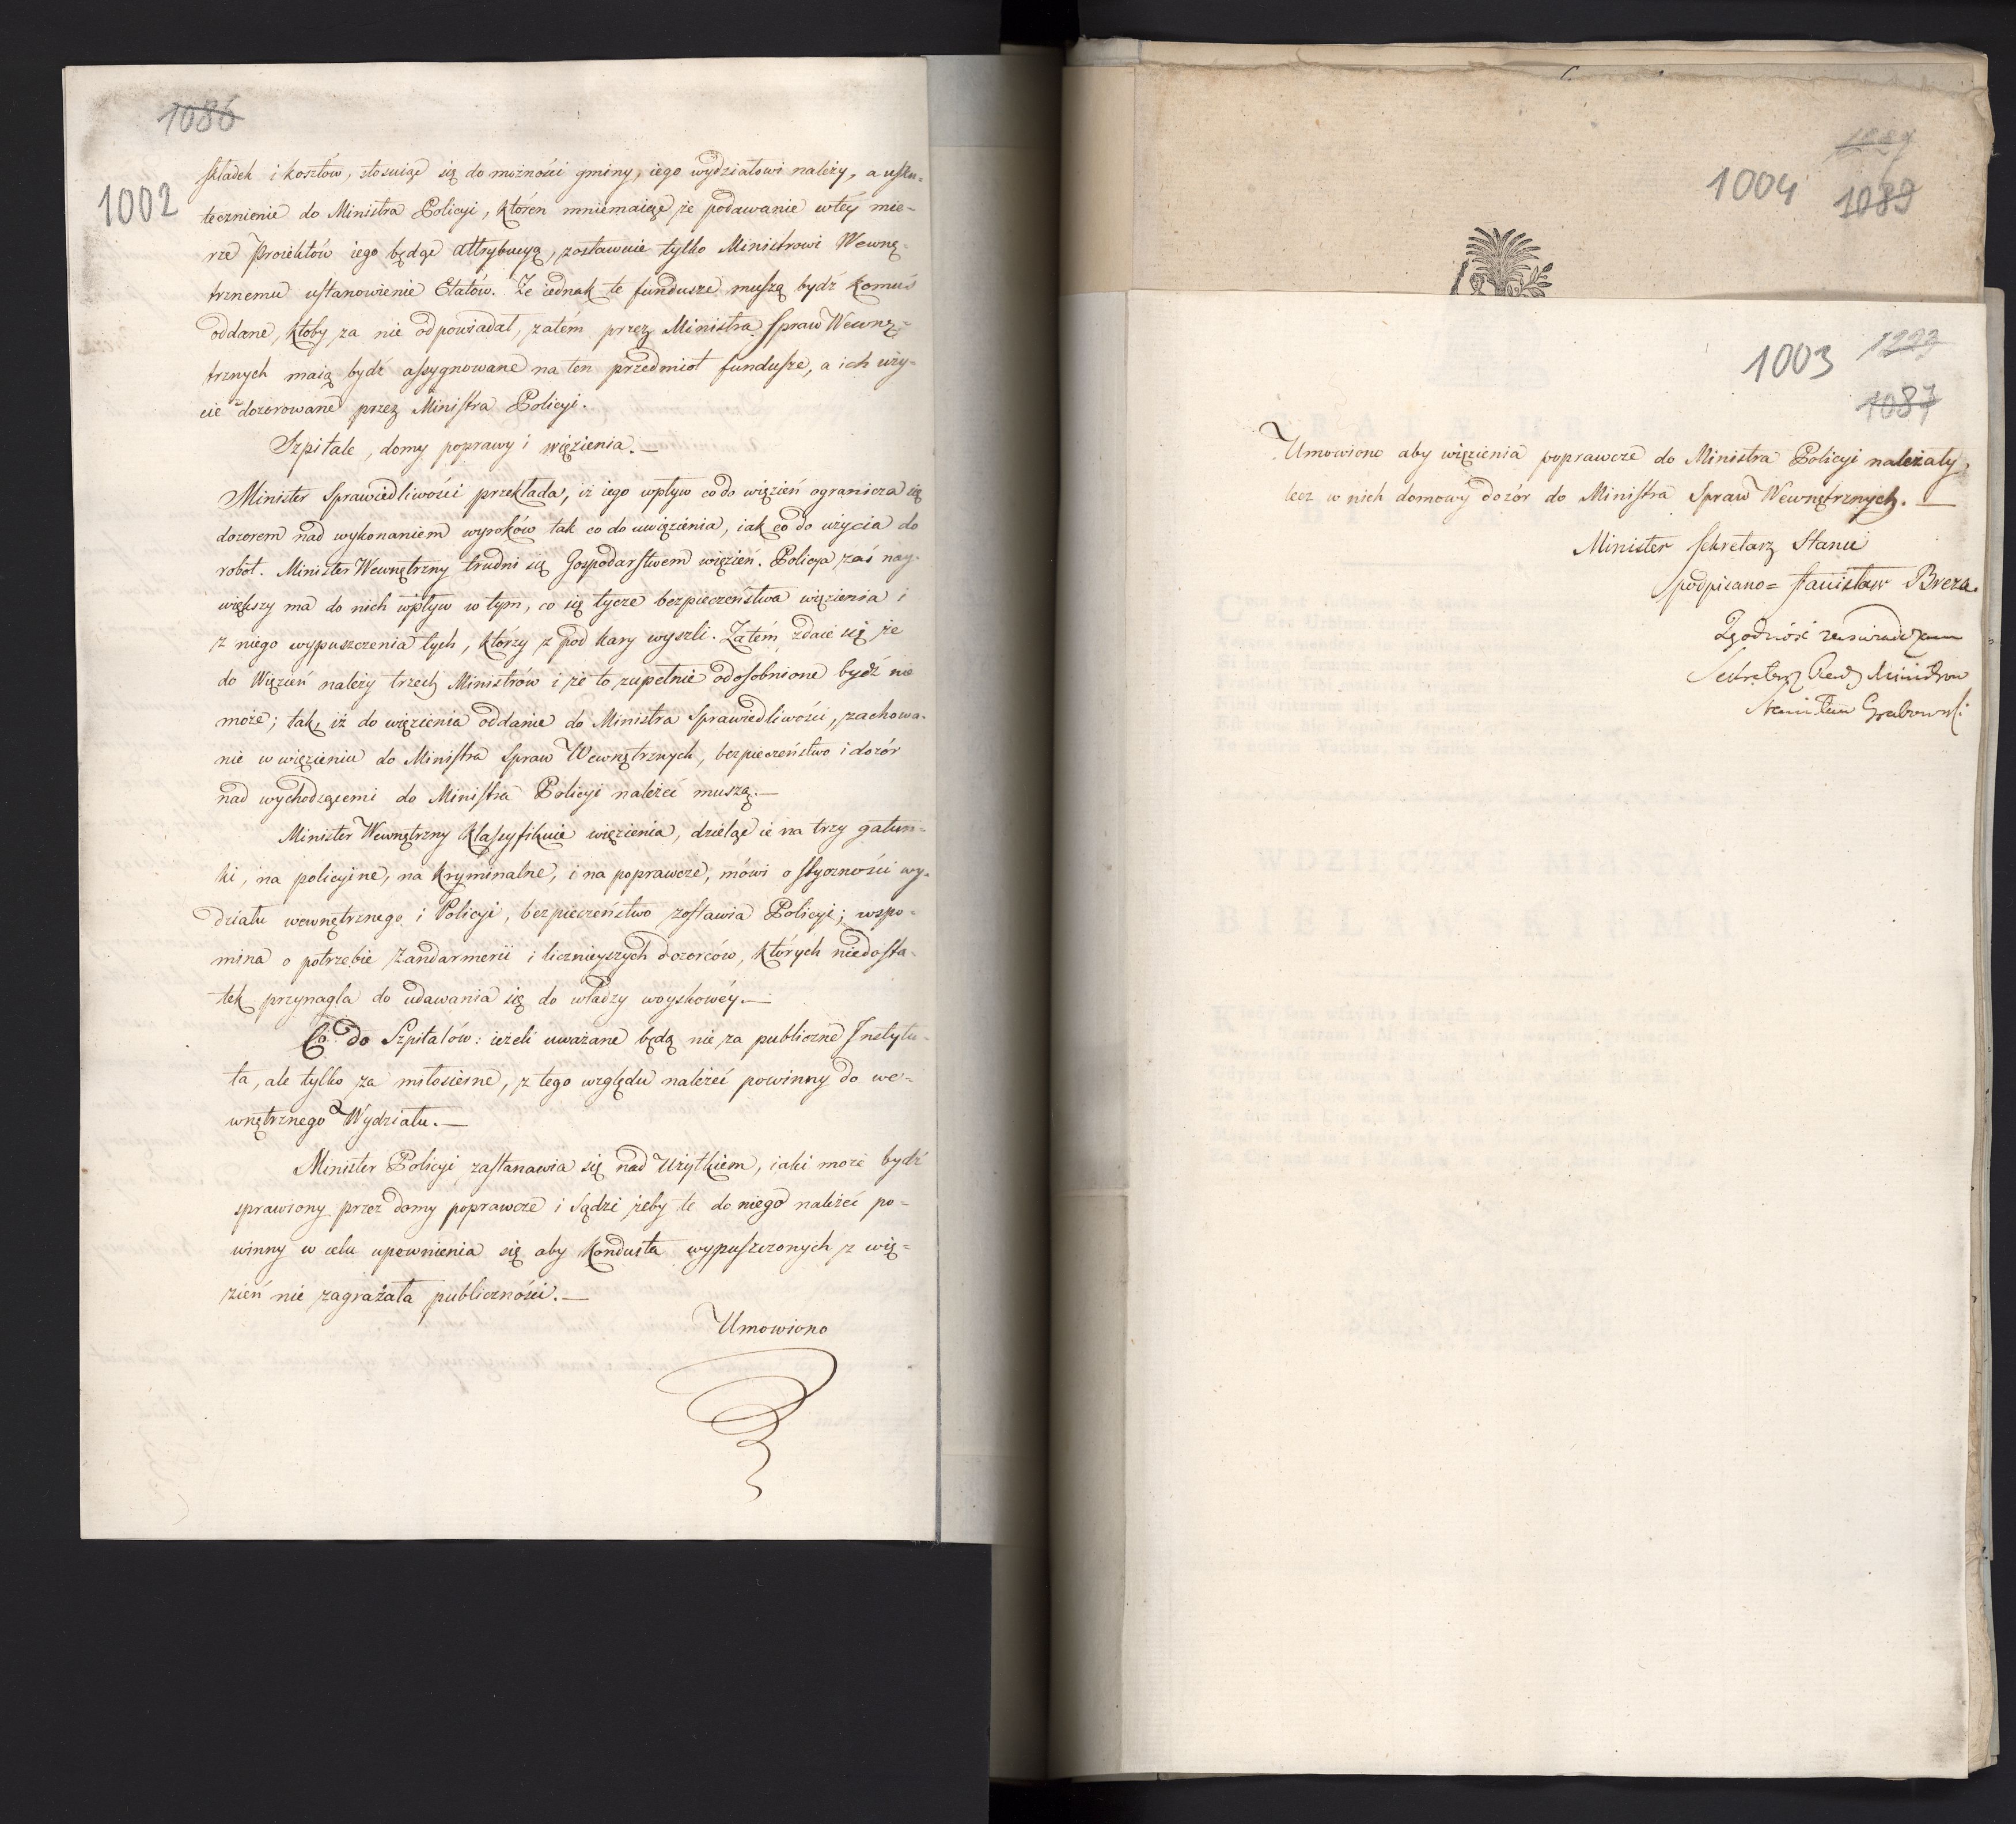 1086
1002
składek i kosztów, stosuiąc się do możności gminy, iego wydziałowi należy, a usku-
tecznienie do Ministra Policyi, któren mniemaiąc że podawanie w téy mie-
rze Proiektów iego będąc attrybucyą, zostawuie tylko Ministrowi Wewnę-
trznemu ustanowienie Etatów. Że iednak te fundusze muszą bydź komuś
oddane, ktoby za nie odpowiadał, zatém przez Ministra Spraw Wewnę-
trznych maią bydź assygnowane na ten przedmiot fundusze, a ich uży-
cie dozorowane przez Ministra Policyi.
Szpitale, domy poprawy i więzienia.—
Minister Sprawiedliwości przekłada, iż iego wpływ co do więzień ogranicza się
dozorem nad wykonaniem wyroków tak co do uwięzienia, iak co do użycia do
robot. Minister Wewnętrzny trudni się Gospodarstwem więzień. Policya zaś nay-
większy ma do nich wpływ w tym, co się tycze bezpieczeństwa więzienia i
z niego wypuszczenia tych, którzy z pod kary wyszli. Zatém zdaie się że
do Więzień należy trzech Ministrów i że to zupełnie odosobnione bydź nie
może; tak, iż do więzienia oddanie do Ministra Sprawiedliwości, zachowa-
nie w więzieniu do Ministra Spraw Wewnętrznych, bezpieczeństwo i dozór
nad wychodzącemi do Ministra Policyi należeć muszą.—
Minister Wewnętrzny klassyfikuie więzienia, dzieląc ie na trzy gatun-
ki, na policyine, na kryminalne, i na poprawcze, mówi o styczności wy-
działu wewnętrznego i Policyi, bezpieczeństwo zostawia Policyi; wspo-
mina o potrzebie żandarmerii i licznieyszych dozorców, których niedosta-
tek przynagla do udawania się do władzy woyskowéy.—
Co do Szpitalów: ieżeli uważane będą nie za publiczne Instytu-
ta, ale tylko za miłosierne, z tego względu należeć powinny do we-
wnętrznego Wydziału.—
Minister Policyi zastanawia się nad użytkiem, iaki może bydź
sprawiony przez domy poprawcze i sądzi żeby te do niego należeć po-
winny w celu upewnienia się aby konduita wypuszczonych z wię-
zień nie zagrażała publiczności.—
Umowiono
1004
1089
1003
1223
1087
Umowiono aby więzienia poprawcze do Ministra Policyi należały,
lecz w nich domowy dozór do Ministra Spraw Wewnętrznych.—
Minister Sekretarz Stanu
podpisano = Stanisław Breza.
Zgodność zaświadczam
Sekretarz Rady Ministrów
Stanisław Grabowski